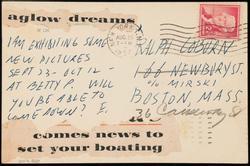 aglow dreams
I AM EXHIBITING SOME
NEW PICTURES
SEPT 23 - OCT 12
AT BETTY P. WILL
YOU BE ABLE TO
COME DOWN? E.
RALPH COBURN
166 NEWBURY ST.
c/o MIRSKI
BOSTON, MASS.
36
comes news to
set your boating